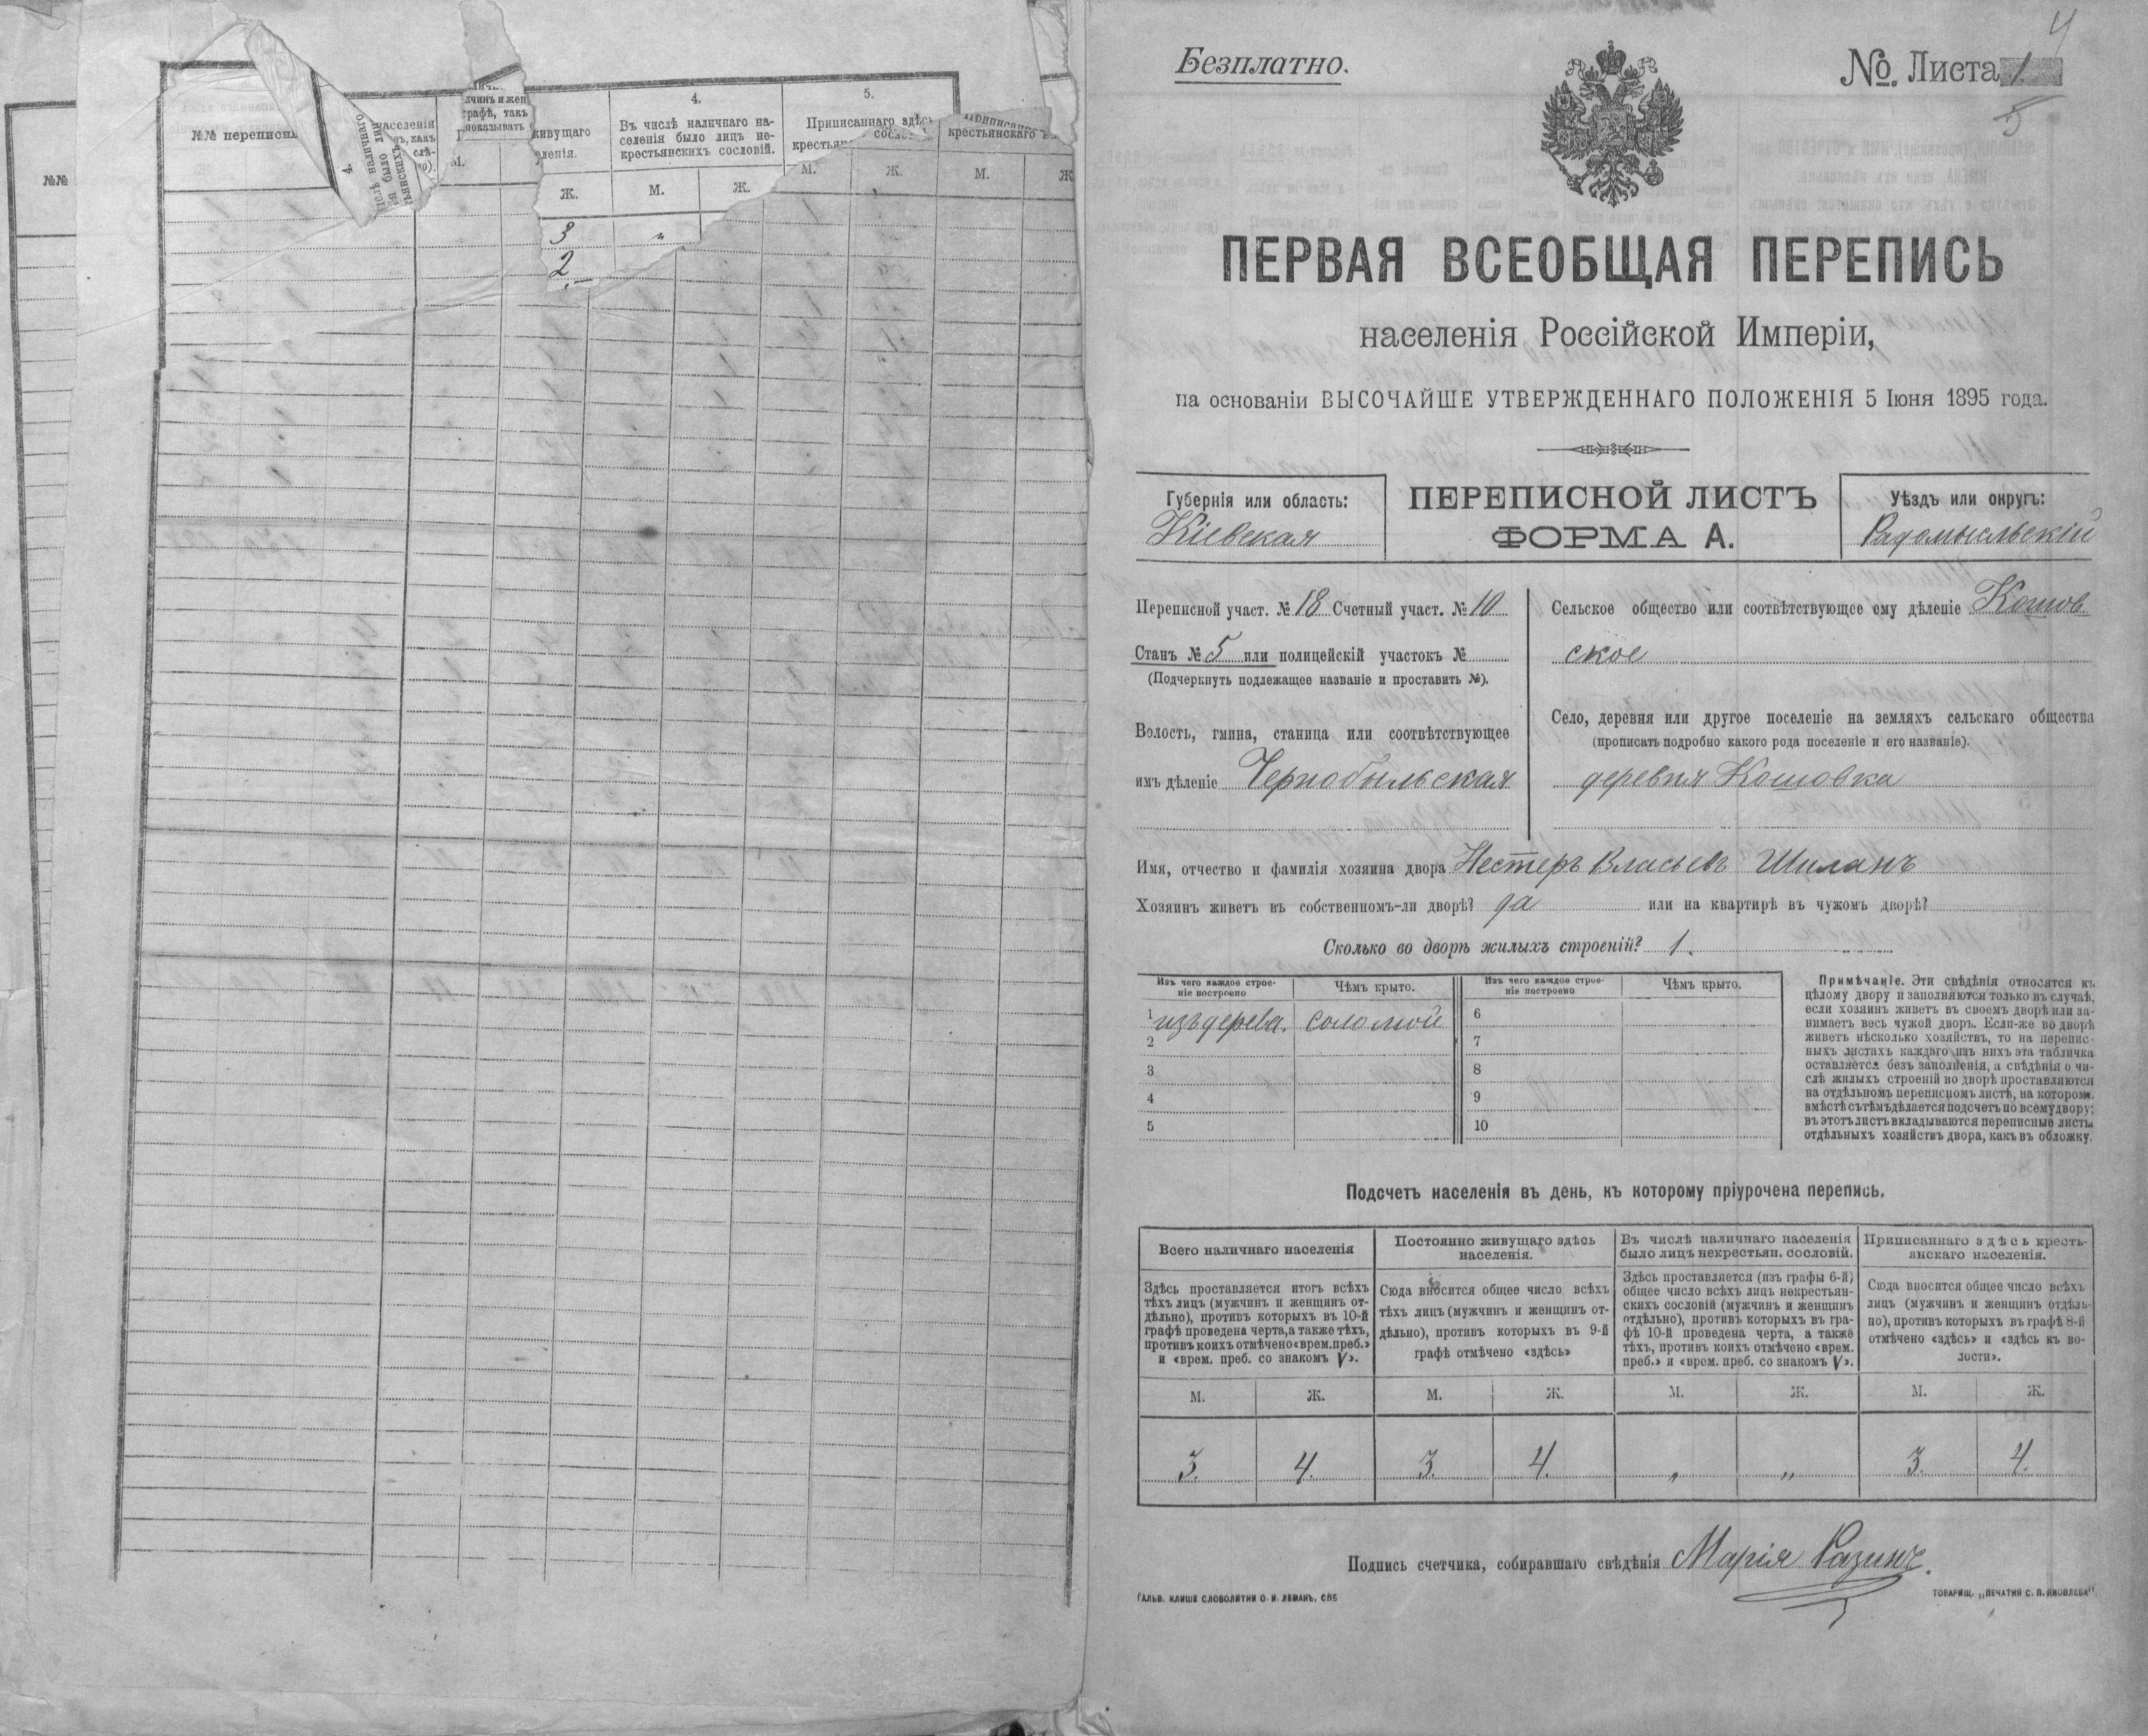 №№
№№ переписн
4.
населенія
живущаго
ленія.
М.
Ж.
3
2
4.
Въ числѣ наличнаго на-
селенія было лицъ не-
крестьянскихъ сословій.
М.
Ж.
„
5.
Приписаннаго здѣсь
М.
Ж.
крестьянскаго
М.
Ж
4
Безплатно.
№ Листа 1.
5
ПЕРВАЯ ВСЕОБЩАЯ ПЕРЕПИСЬ
населенія Россійской Имперіи,
на основаніи ВЫСОЧАЙШЕ УТВЕРЖДЕННАГО ПОЛОЖЕНІЯ 5 Іюня 1895 года.
Губернія или область:
Кіевская
ПЕРЕПИСНОЙ ЛИСТЪ
ФОРМА А.
Уѣздъ или округъ:
Радомысльскій
Переписной участ. № 18 Счетный участ. № 10
Станъ № 5 или полицейскій участокъ №
(Подчеркнуть подлежащее названіе и проставить №).
Волость, гмина, станица или соотвѣтствующее
имъ дѣленіе Чернобыльская
Сельское общество или соотвѣтствующее ему дѣленіе Кошов
ское
Село, деревня или другое поселеніе на земляхъ сельскаго общества
(прописать подробно какого рода поселеніе и его названіе).
деревня Кошовка
Имя, отчество и фамилія хозяина двора Нестеръ Власьевъ Шиланъ
Хозяинъ живетъ въ собственномъ-ли дворѣ? да или на квартирѣ въ чужомъ дворѣ?
Сколько во дворѣ жилыхъ строеній? 1.
Изъ чего каждое строе-
ніе построено
Чѣмъ крыто.
Изъ чего каждое строе-
ніе построено
Чѣмъ крыто.
1 изъ дерева. соломой 6
2 7
3 8
4 9
5 10
Примѣчаніе. Эти свѣдѣнія относятся къ
цѣлому двору и заполняются только въ случаѣ,
если хозяинъ живетъ въ своемъ дворѣ или за-
нимаетъ весь чужой дворъ. Если-же во дворѣ
живетъ нѣсколько хозяйствъ, то на перепис-
ныхъ листахъ каждаго изъ нихъ эта табличка
оставляется безъ заполненія, а свѣдѣнія о чи-
слѣ жилыхъ строеній во дворѣ проставляются
на отдѣльномъ переписномъ листѣ, на которомъ
вмѣстѣ съ тѣмъ дѣлается подсчетъ по всему двору;
въ этотъ листъ вкладываются переписные листы
отдѣльныхъ хозяйствъ двора, какъ въ обложку.
Подсчетъ населенія въ день, къ которому пріурочена перепись.
Всего наличнаго населенія
Здѣсь проставляется итогъ всѣхъ
тѣхъ лицъ (мужчинъ и женщинъ от-
дѣльно), противъ которыхъ въ 10-й
графѣ проведена черта, а также тѣхъ,
противъ коихъ отмѣчено «врем. преб.»
и «врем. преб. со знакомъ V».
Постоянно живущаго здѣсь
населенія.
Сюда вносится общее число всѣхъ
тѣхъ лицъ (мужчинъ и женщинъ от-
дѣльно), противъ которыхъ въ 9-й
графѣ отмѣчено «здѣсь»
Въ числѣ наличнаго населенія
было лицъ некрестьян. сословій.
Здѣсь проставляется (изъ графы 6-й)
общее число всѣхъ лицъ некрестьян-
скихъ сословій (мужчинъ и женщинъ
отдѣльно), противъ которыхъ въ гра-
фѣ 10-й проведена черта, а также
тѣхъ, противъ коихъ отмѣчено «врем.
преб.» и «врем. преб. со знакомъ V».
Приписаннаго здѣсь кресть-
янскаго населенія.
Сюда вносится общее число всѣхъ
лицъ (мужчинъ и женщинъ отдѣль-
но), противъ которыхъ въ графѣ 8-й
отмѣчено «здѣсь» и «здѣсь къ во-
лости».
М. Ж. М. Ж. М. Ж. М. Ж.
3. 4. 3. 4. „ „ 3. 4.
Подпись счетчика, собиравшаго свѣдѣнія Марія Разинъ.
ГАЛЬВ. КЛИШЕ СЛОВОЛИТНИ О. И. ЛЕМАНЪ, СПБ
ТОВАРИЩ. „ПЕЧАТНЯ С. П. ЯКОВЛЕВА"